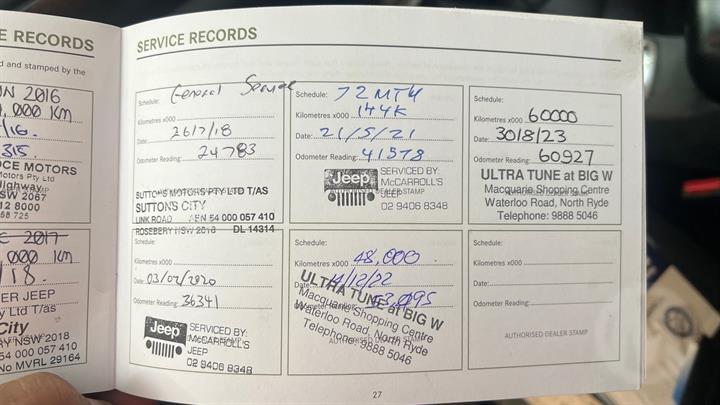 E RECORDS
d and stamped by the
UN 2016
,000 KM
/16.
315.
CE MOTORS
Motors Pty Ltd
Highway
SW 2067
12 8000
68 725
E 2017
000 KM
/18.
ER JEEP
y Ltd T/as
City
RY NSW 2018
54 000 057 410
No MVRL 29164
SERVICE RECORDS
Schedule: General Service
Kilometres x000
Date: 26/7/18
Odometer Reading: 24783
SUTTONS MOTORS PTY LTD T/AS
SUTTON'S CITY
LINK ROAD ABN 54 000 057 410
ROSEBERY NSW 2018 DL 14314
Schedule: 72 MTH
Kilometres x000 144K
Date: 21/5/21
Odometer Reading: 41578
Jeep
SERVICED BY:
McCARROLL'S
JEEP
02 9406 8348
AUTHORISED DEALER STAMP
Schedule:
Kilometres x000 60000
Date: 30/8/23
Odometer Reading: 60927
ULTRA TUNE at BIG W
Macquarie Shopping Centre
Waterloo Road, North Ryde
Telephone: 9888 5046
Schedule:
Kilometres x000
Date: 03/02/2020
Odometer Reading: 36341
Jeep
SERVICED BY:
McCARROLL'S
JEEP
02 9406 8348
Schedule:
Kilometres x000 48,000
Date: 14/12/22
Odometer Reading: 53,095
ULTRA TUNE at BIG W
Macquarie Shopping Centre
Waterloo Road, North Ryde
Telephone: 9888 5046
Schedule:
Kilometres x000
Date:
Odometer Reading:
AUTHORISED DEALER STAMP
27